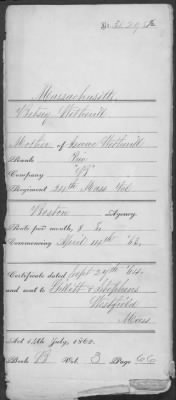 Massachusetts
Betsey Wetherell
Mother of Isaac Wetherell
Rank Priv
Company "B"
Regiment 27th Mass Vol
Boston Agency.
Rate per month, $ 8
Commencing April 14th '63.
Certificate dated Sept 29th '64
and sent to Gillett & Stephens
Westfield
Mass
Act 14th July, 1862.
Book B Vol. 3 Page 66